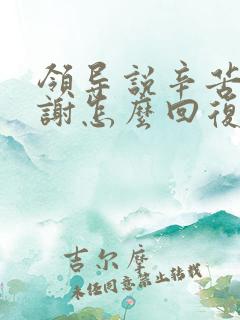 領导説辛苦
謝怎麽回復
吉尔摩
未经同意禁止转载